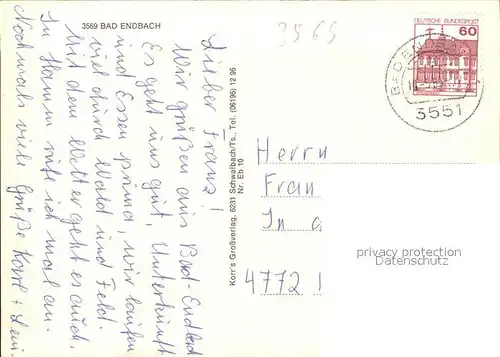 3569 BAD ENDBACH
3569
Lieber Franz!
Wir grüßen aus Bad-Endbach
Es geht uns gut, Unterkunft
und Essen prima, wir laufen
viel durch Wald und Feld.
Mit dem Wetter geht es auch.
In Hamm rufe ich mal an.
Nochmals viele Grüße Karl +
Korr's Großverlag, 6231 Schwalbach/Ts., Tel. (06196) 12 95
Nr. Eb 10
DEUTSCHE BUNDESPOST
60
BAD ENDBACH
3551
Herrn
Fran
In a
4772
privacy protection
Datenschutz